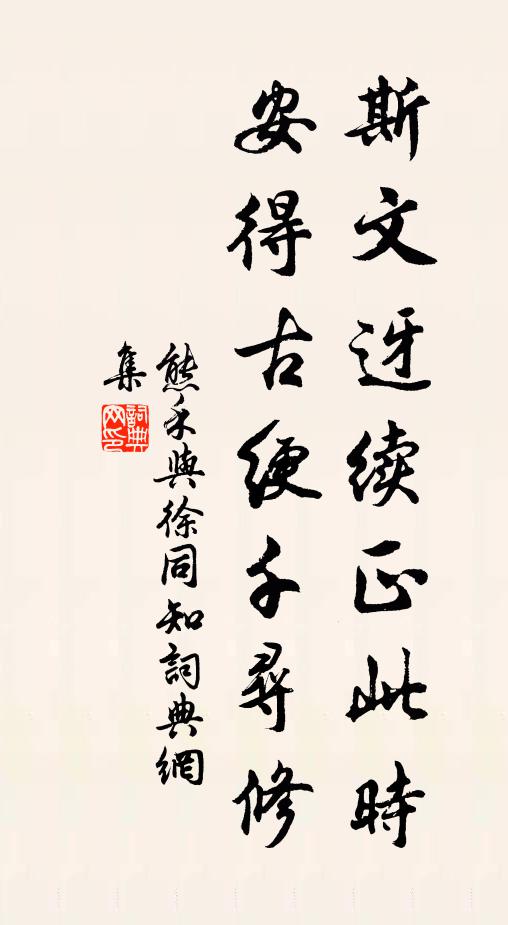 斯文迓续正此時
安得古绠千尋修
熊禾與徐同知詞典網
集
詞典网印